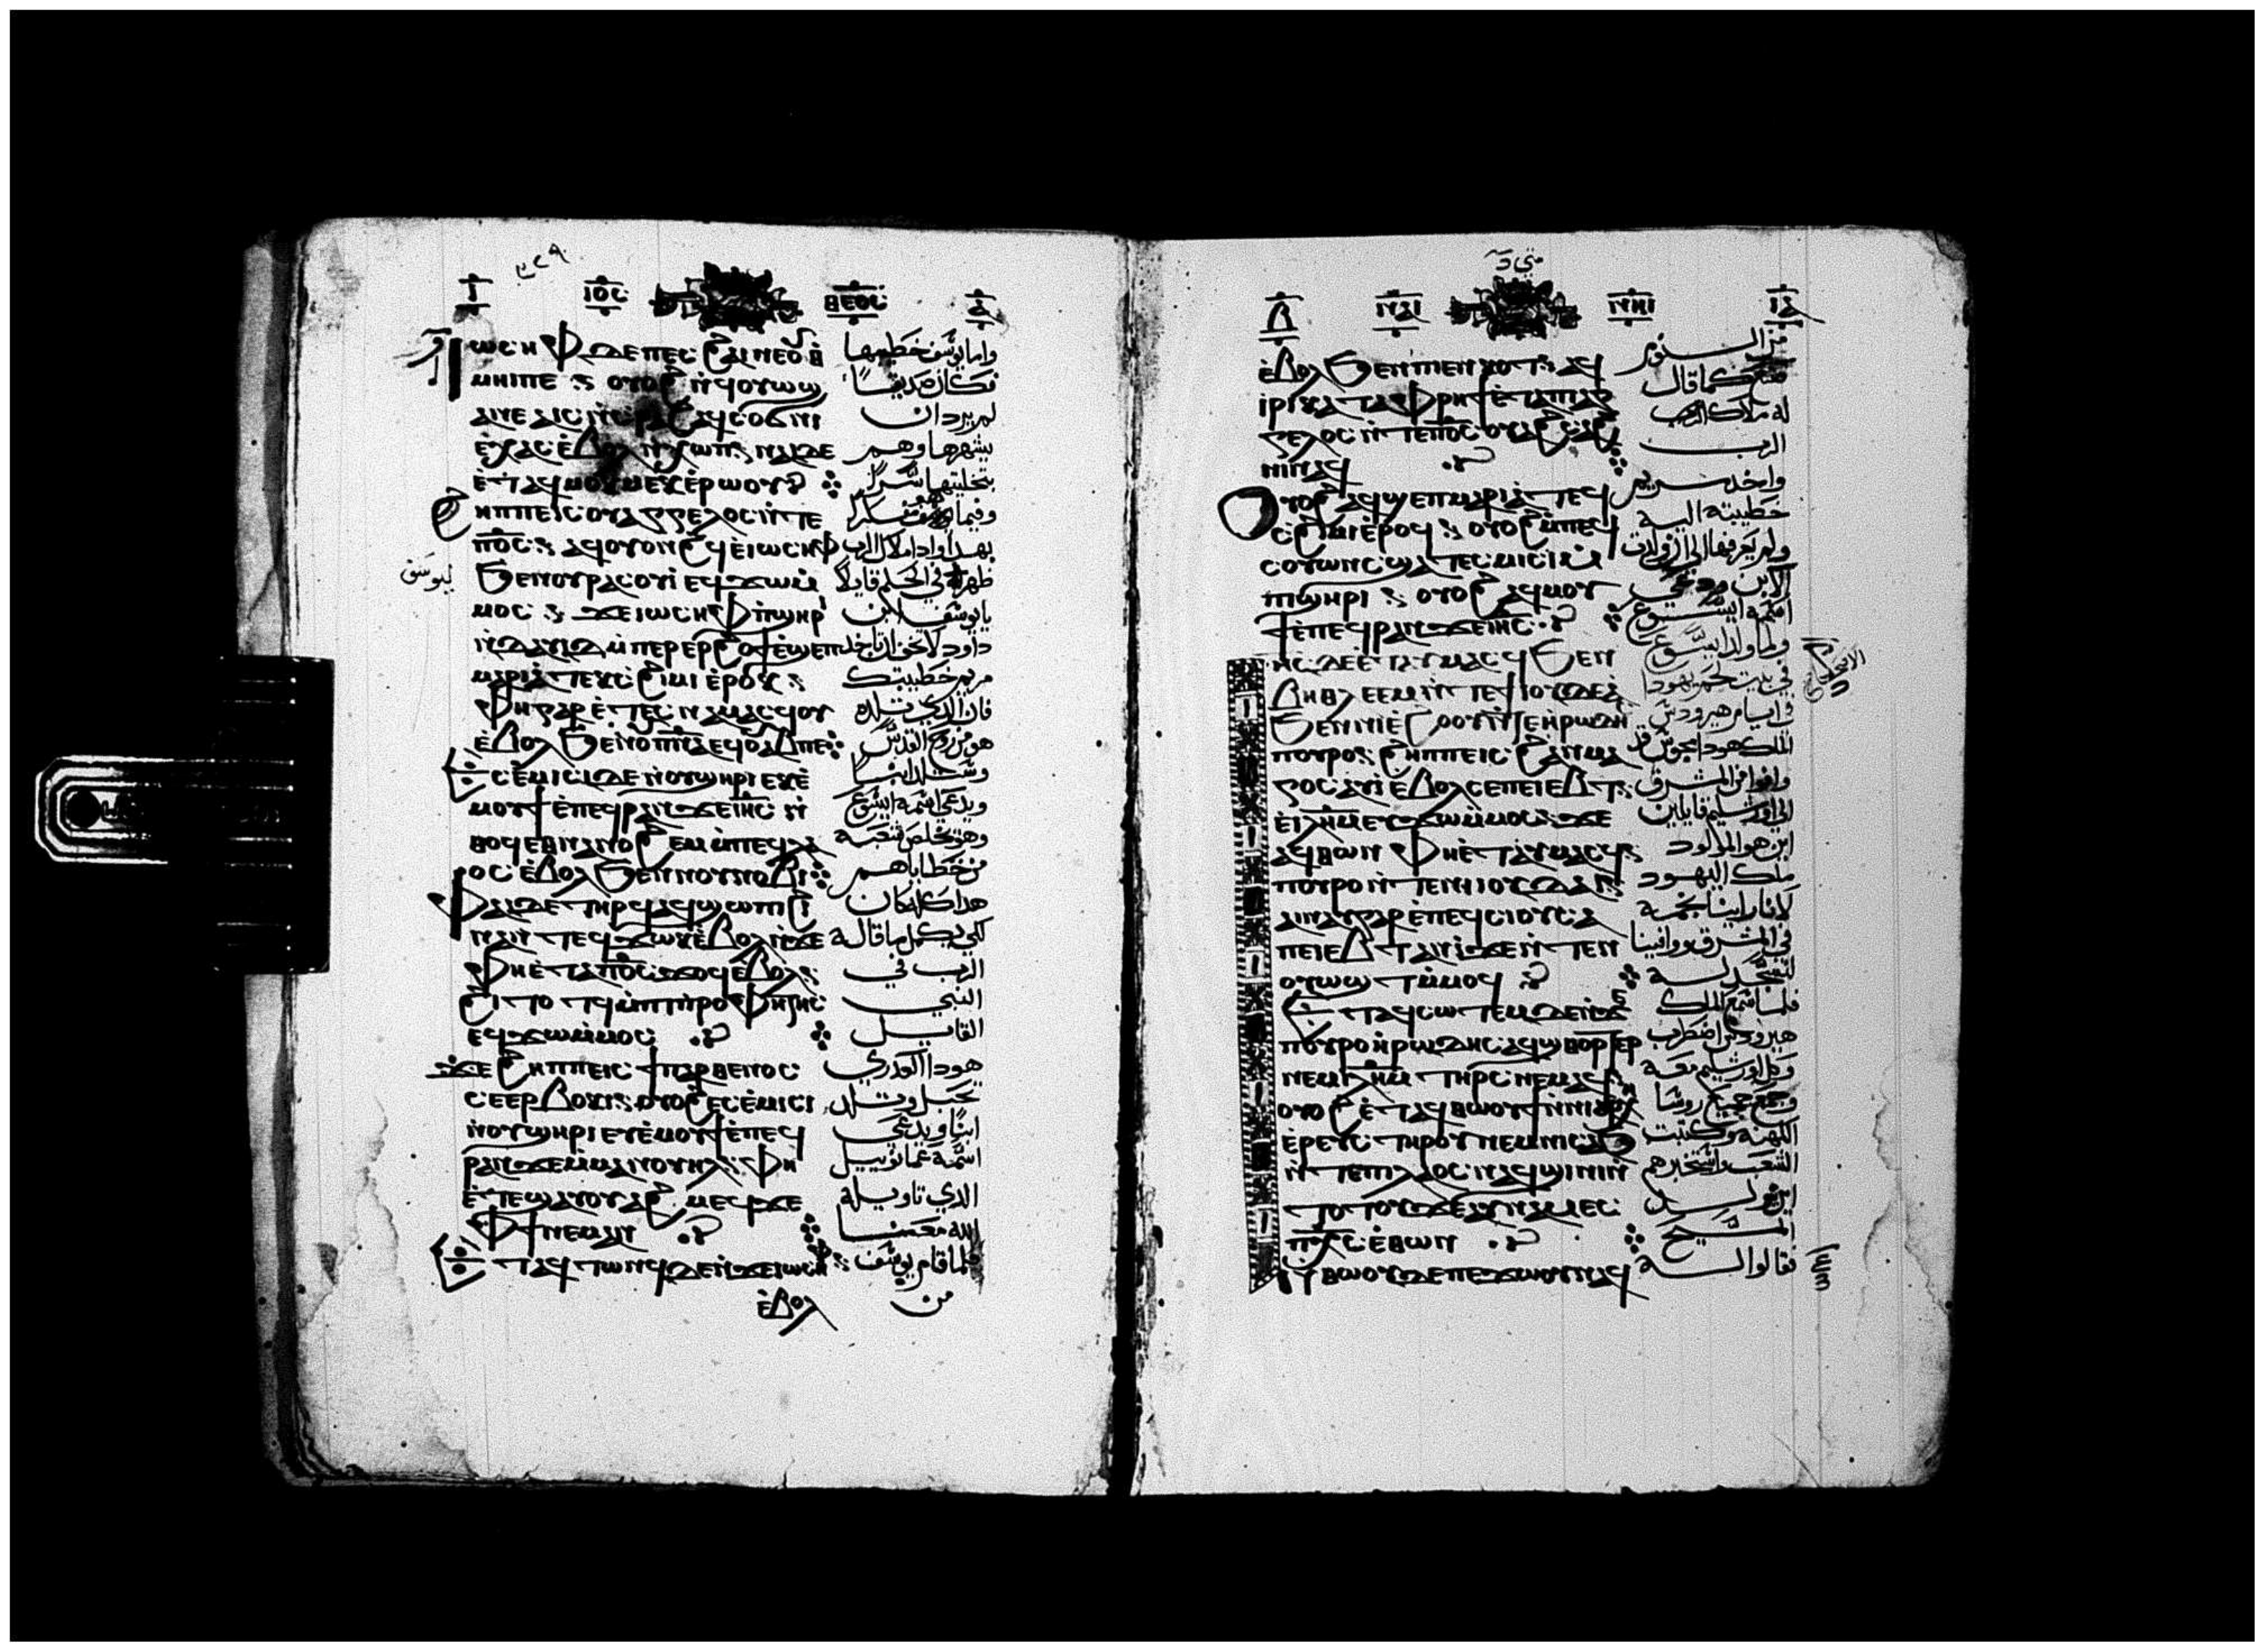 ⲓⲟⲥ ⲑⲉⲟⲥ
ⲓⲱⲥⲏⲫ ⲇⲉ ⲡⲉⲥϩⲁⲓ ⲛⲉⲟⲩⲑ
ⲙⲏⲓⲡⲉ : ⲟⲩⲟϩ ⲛϥⲟⲩⲱϣ
ⲁⲛⲉ
ⲉⲭⲁⲥ ⲉⲃⲟⲗ ⲛⲭⲱⲡ : ⲛⲁⲓ ⲇⲉ
ⲉⲧⲁϥⲙⲟⲕⲙⲉⲕ ⲉⲣⲱⲟⲩ
ϩⲏⲡⲡⲉ ⲓⲥ ⲟⲩⲁⲅⲅⲉⲗⲟⲥ ⲛⲧⲉ
ⲡⲟⲥ : ⲁϥⲟⲩⲟⲛϩϥ ⲉⲓⲱⲥⲏⲫ
ϧⲉⲛ ⲟⲩⲣⲁⲥⲟⲩⲓ ⲉϥϫⲱⲙ
ⲙⲟⲥ : ϫⲉ ⲓⲱⲥⲏⲫ ⲡϣⲏⲣⲓ
ⲛⲇⲁⲩⲓⲇ ⲙⲡⲉⲣⲉⲣϩⲟϯ ⲉϣⲉⲡ
ⲙⲁⲣⲓⲁ ⲧⲉⲕⲥϩⲓⲙⲓ ⲉⲣⲟⲕ :
ⲫⲏ ⲅⲁⲣ ⲉⲧⲉⲥⲛⲁⲙⲁⲥϥ ⲟⲩ
ⲉⲃⲟⲗ ϧⲉⲛ ⲟⲩⲡⲛⲁ ⲉϥⲟⲩⲁⲃ ⲡⲉ
ⲉⲥⲉⲙⲓⲥⲓ ⲇⲉ ⲛⲟⲩϣⲏⲣⲓ ⲉⲕⲉ
ⲙⲟⲩϯ ⲉⲡⲉϥⲣⲁⲛ ϫⲉ ⲓⲏⲥ ⲛ
ⲑⲟϥ ⲉⲑⲛⲁⲛⲟϩⲉⲙ ⲙⲡⲉϥⲗⲁ
ⲟⲥ ⲉⲃⲟⲗ ϧⲉⲛ ⲛⲟⲩⲛⲟⲃⲓ
ⲫⲁⲓ ⲇⲉ ⲧⲏⲣϥ ⲁϥϣⲱⲡⲓ ϩⲓ
ⲛⲁ ⲛⲧⲉϥϫⲱⲕ ⲉⲃⲟⲗ ⲛϫⲉ
ⲫⲏ ⲉⲧⲁ ⲡⲟⲥ ϫⲟϥ ⲉⲃⲟⲗ :
ϩⲓⲧⲟⲧϥ ⲙⲡⲓⲡⲣⲟⲫⲏⲧⲏⲥ
ⲉϥϫⲱⲙⲙⲟⲥ
ϫⲉ ϩⲏⲡⲡⲉ ⲓⲥ ϯⲡⲁⲣⲑⲉⲛⲟⲥ
ⲥⲉⲉⲣⲃⲟⲕⲓ : ⲟⲩⲟϩ ⲉⲥⲉⲙⲓⲥⲓ
ⲛⲟⲩϣⲏⲣⲓ ⲉⲩⲉⲙⲟⲩϯ ⲉⲡⲉϥ
ⲣⲁⲛ ϫⲉ ⲉⲙⲙⲁⲛⲟⲩⲏⲗ : ⲫⲏ
ⲉⲧⲉϣⲁⲩⲟⲩⲁϩⲙⲉϥ ϫⲉ
ⲫϯ ⲛⲉⲙⲁⲛ
ⲉⲧⲁϥⲧⲱⲛϥ ⲇⲉ ⲛϫⲉ ⲓⲱⲥⲏⲫ :
ⲉⲃⲟⲗ
واما يوسف خطيبها
فكان صديقا
لم يريد ان
يشهرها وهم
بتخليتها سرا
وفيما هو متفكرا
بهدا وادا ملاك الرب
ظهر له في الحلم قايلا
يا يوسف ابن
داود لا تخف ان تاخد
مريم خطيبتك
فان الدي تلده
هو من روح القدس
وستلد ابنا
ويدعى اسمه ايسوع
وهو يخلص شعبه
من خطاياهم
هدا كله كان
لكي يكمل ما قاله
الرب في
النبي
القايل
هودا العدرى
تحبل وتلد
ابنا ويدعى
اسمه عمانوييل
الدي تاويله
الله معنا
فلما قام يوسف
من
ليوسف
متى
ⲓⲏⲥ
ⲉⲃⲟⲗ ϧⲉⲛ ⲡⲉⲛⲕⲟⲧ : ⲁϥ
ⲓⲣⲓ ⲕⲁⲧⲁ ⲫⲣⲏϯ ⲉⲧⲁ ⲡⲁⲅ
ⲅⲉⲗⲟⲥ ⲛⲧⲉ ⲡⲟⲥ ⲟⲩⲁϩⲥⲁϩ
ⲛⲓ ⲛⲁϥ
ⲟⲩⲟϩ ⲁϥϣⲉⲡ ⲙⲁⲣⲓⲁ ⲧⲉϥ
ⲥϩⲓⲙⲓ ⲉⲣⲟϥ : ⲟⲩⲟϩ ⲙⲡⲉϥ
ⲥⲟⲩⲱⲛⲥ ϣⲁⲧⲉⲥⲙⲓⲥⲓ ⲙ
ⲡϣⲏⲣⲓ : ⲟⲩⲟϩ ⲁϥⲙⲟⲩ
ϯ ⲉⲡⲉϥⲣⲁⲛ ϫⲉ ⲓⲏⲥ
ⲓⲏⲥ ⲇⲉ ⲉⲧⲁⲩⲙⲁⲥϥ ϧⲉⲛ
ⲃⲏⲑⲗⲉⲉⲙ ⲛⲧⲉ ϯⲓⲟⲩⲇⲉⲁ
ϧⲉⲛ ⲛⲓⲉϩⲟⲟⲩ ⲛⲧⲉ ⲏⲣⲱⲇⲏⲥ
ⲡⲟⲩⲣⲟ : ϩⲏⲡⲡⲉ ⲓⲥ ϩⲁⲛⲙⲁ
ⲅⲟⲥ ⲁⲩⲓ ⲉⲃⲟⲗ ⲥⲁ ⲡⲉⲓⲉⲃⲧ :
ⲉⲓⲗⲏⲙ ⲉⲩϫⲱⲙⲙⲟⲥ : ϫⲉ
ⲁϥⲑⲱⲛ ⲫⲏ ⲉⲧⲁⲩⲙⲁⲥϥ :
ⲡⲟⲩⲣⲟ ⲛⲧⲉ ⲛⲓⲓⲟⲩⲇⲁⲓ :
ⲁⲛⲛⲁⲩ ⲅⲁⲣ ⲉⲡⲉϥⲥⲓⲟⲩ ⲥⲁ
ⲡⲉⲓⲉⲃⲧ ⲁⲛⲓ ϫⲉ ⲛⲧⲉⲛ
ⲟⲩⲱϣⲧ ⲙⲙⲟϥ
ⲉⲧⲁϥⲥⲱⲧⲉⲙ ⲇⲉ ⲛϫⲉ
ⲡⲟⲩⲣⲟ ⲏⲣⲱⲇⲏⲥ ⲁϥϣⲑⲟⲣⲧⲉⲣ
ⲛⲉⲙ ⲓⲗⲏⲙ ⲧⲏⲣⲥ ⲛⲉⲙⲁϥ
ⲟⲩⲟϩ ⲉⲧⲁϥⲑⲱⲟⲩϯ ⲛⲛⲓⲁⲣⲭⲏ
ⲉⲣⲉⲩⲥ ⲧⲏⲣⲟⲩ ⲛⲉⲙ ⲛⲓⲥⲁϧ
ⲛⲧⲉ ⲡⲓⲗⲁⲟⲥ ⲛⲁϥϣⲓⲛⲓ ⲛ
ⲧⲟⲧⲟⲩ ϫⲉ ⲁⲩⲛⲁⲙⲉⲥ
ⲡⲭⲥ ⲉⲑⲱⲛ
ⲛⲑⲱⲟⲩ ⲇⲉ ⲡⲉϫⲱⲟⲩ ⲛⲁϥ
من النوم
صنع كما قال
له ملاك الرب
الرب
واخد مريم
خطيبته اليه
ولم يعرفها الى ان ولدت
الابن ودعي
اسمه ايسوع
ولما ولد ايسوع
في بيت لحم يهودا
في ايام هيرودس
الملك هودا مجوس قد
وافوا من المشرق
الى اورشليم قايلين
اين هو المولود
ملك اليهود
لاننا راينا نجمه
في المشرق ووافينا
لنسجد له
فلما سمع الملك
هيرودس اضطرب
وكل اورشليم معه
وجمع جميع روسا
الكهنه وكتبت
الشعب واستخبرهم
اين يولد
المسيح
فقالوا له